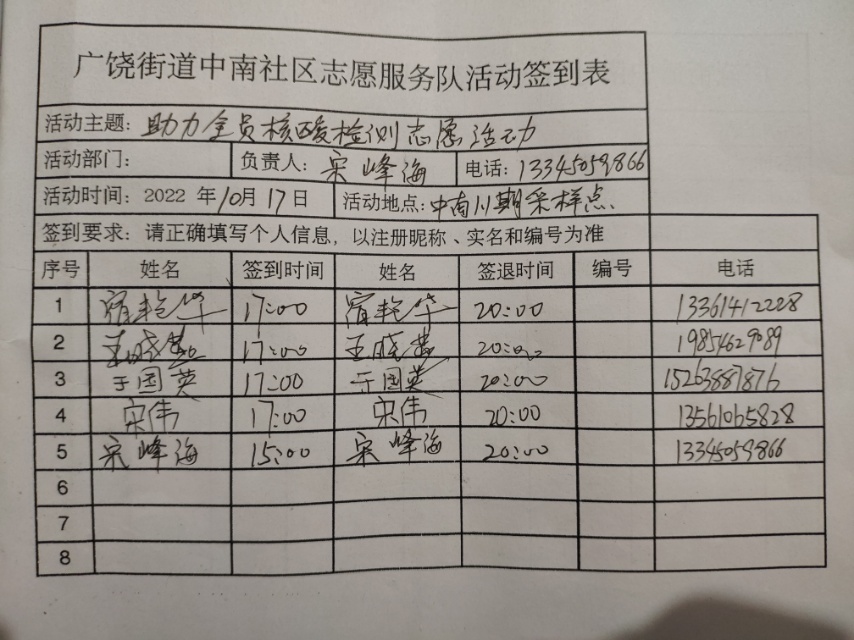 广饶街道中南社区志愿服务队活动签到表
活动主题: 助力全员核酸检测志愿活动
活动部门: 负责人: 宋峰海 电话: 13345059866
活动时间: 2022 年10月17日 活动地点: 中南川期采样点.
签到要求: 请正确填写个人信息，以注册昵称、实名和编号为准
序号 姓名 签到时间 姓名 签退时间 编号 电话
1 宿艳华 17:00 宿艳华 20:00 13361412228
2 王晓燕 17:00 王晓燕 20:00 19854629089
3 于国英 17:00 于国英 20:00 15263887876
4 宋伟 17:00 宋伟 20:00 13561065828
5 宋峰海 15:00 宋峰海 20:00 13345059866
6
7
8